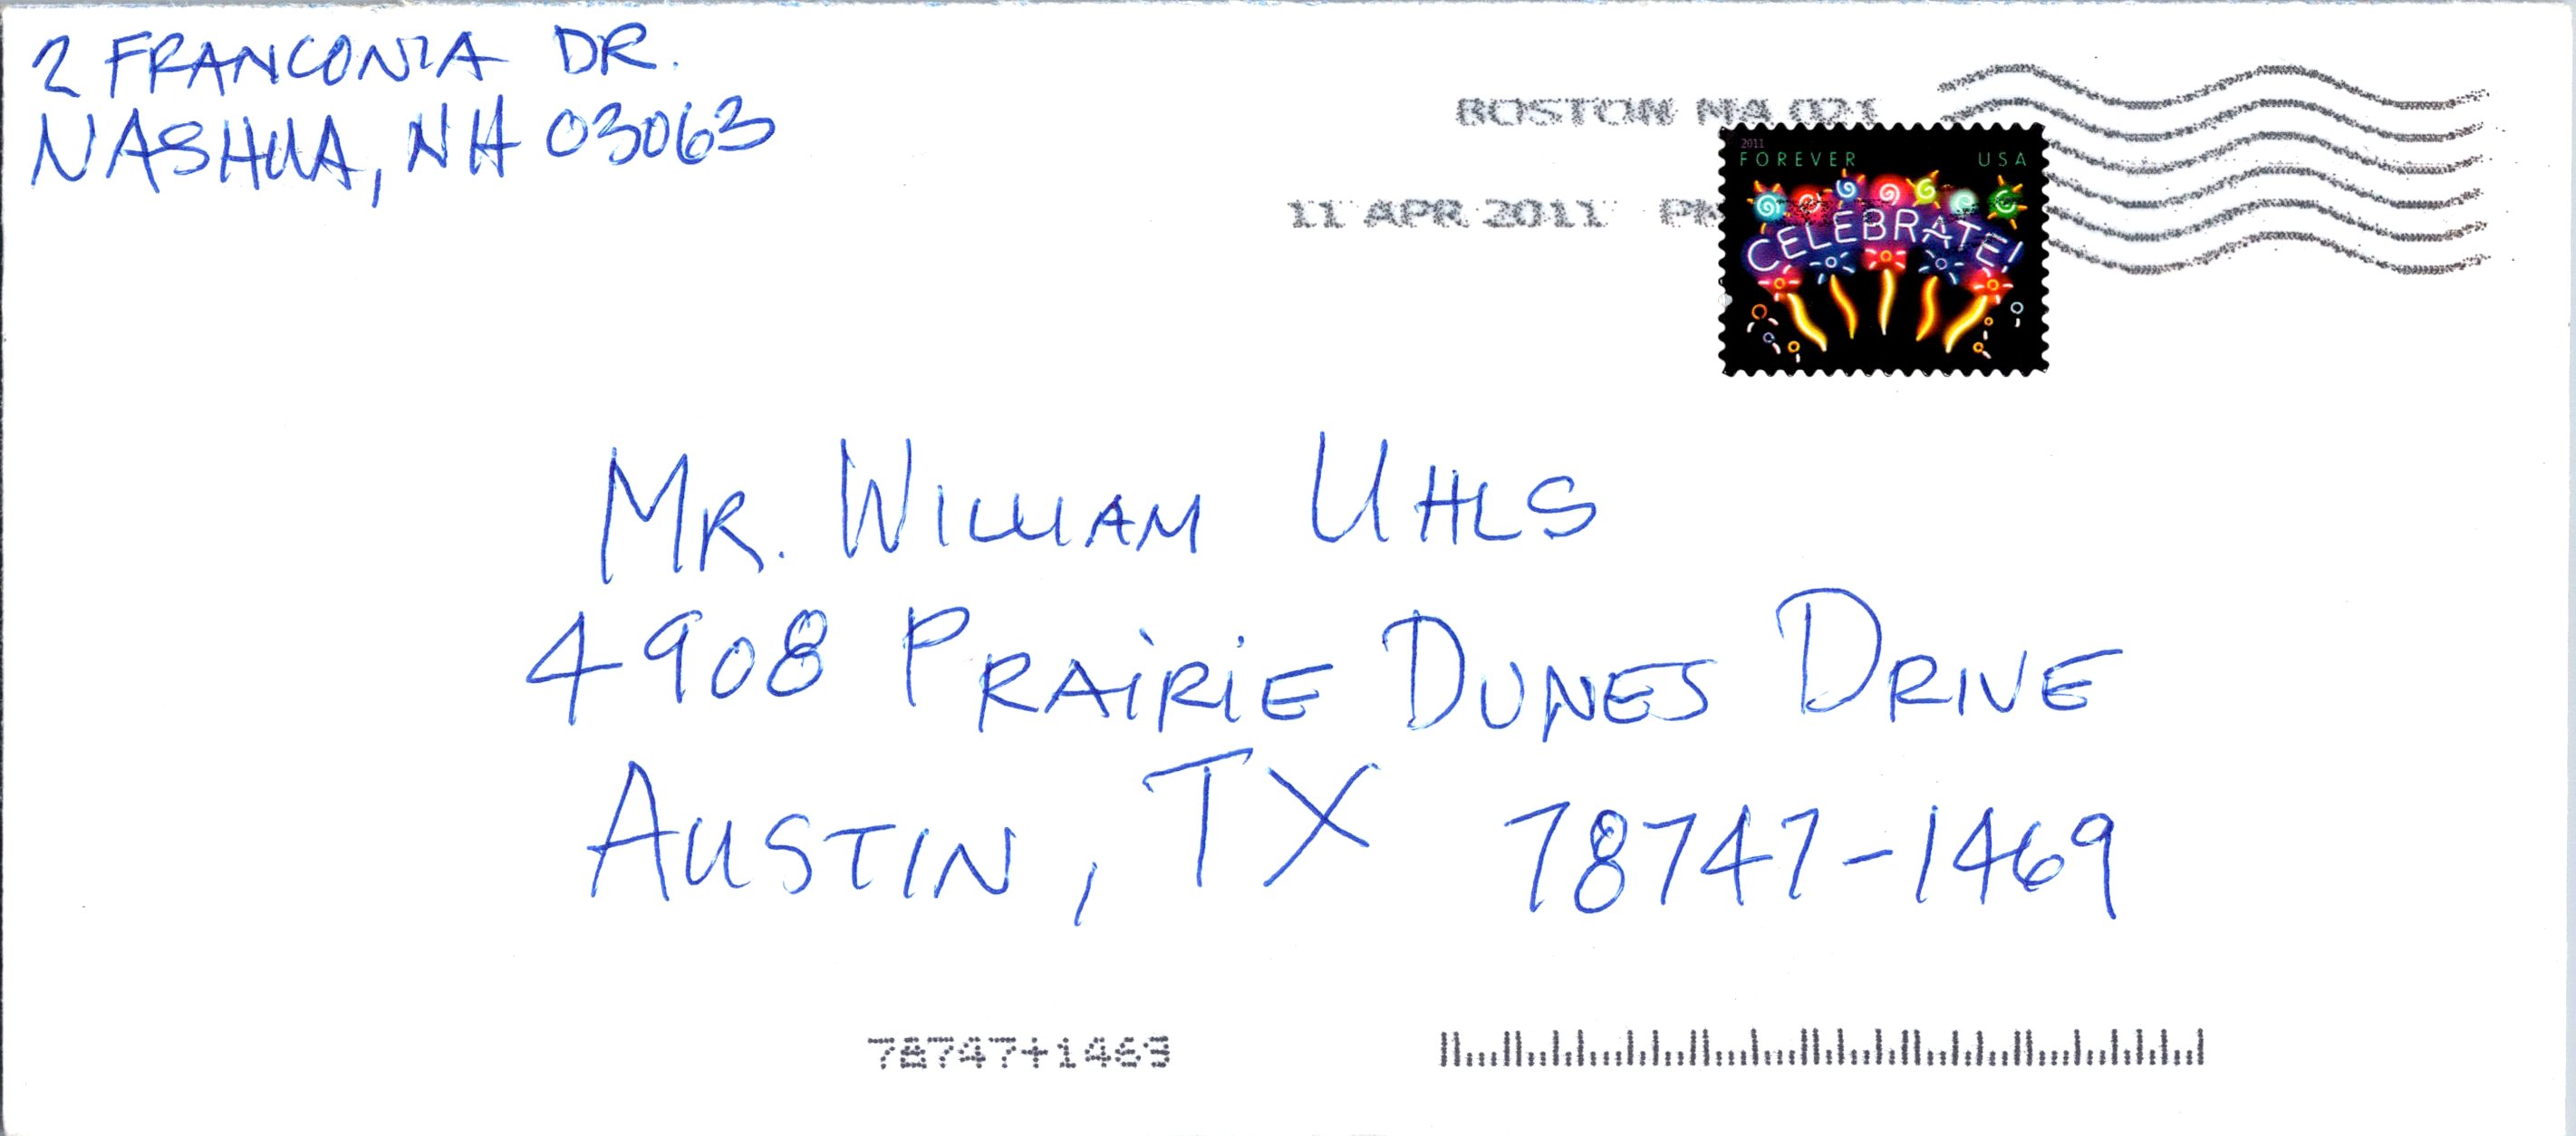 2 FRANCONIA DR.
NASHUA, NH 03063
BOSTON MA 021
11 APR 2011 PM
2011
FOREVER USA
CELEBRATE!
MR. WILLIAM UHLS
4908 PRAIRIE DUNES DRIVE
AUSTIN, TX 78747-1469
78747+1469